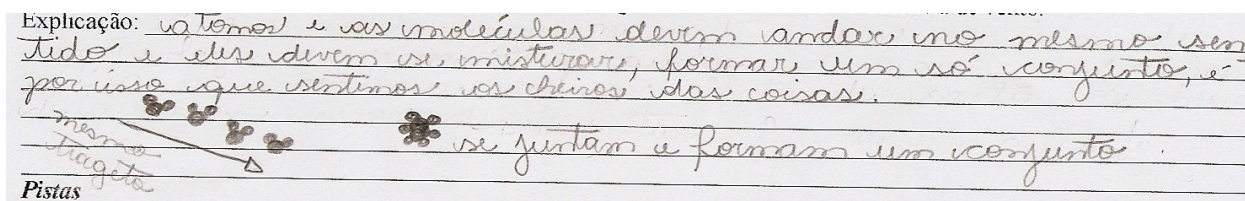 Explicação: átomos e as moléculas devem andar no mesmo sen
tido e eles devem se misturar, formar um só conjunto, é
por isso que sentimos os cheiros das coisas.
mesmo
trageto
se juntam e formam um conjunto.
Pistas